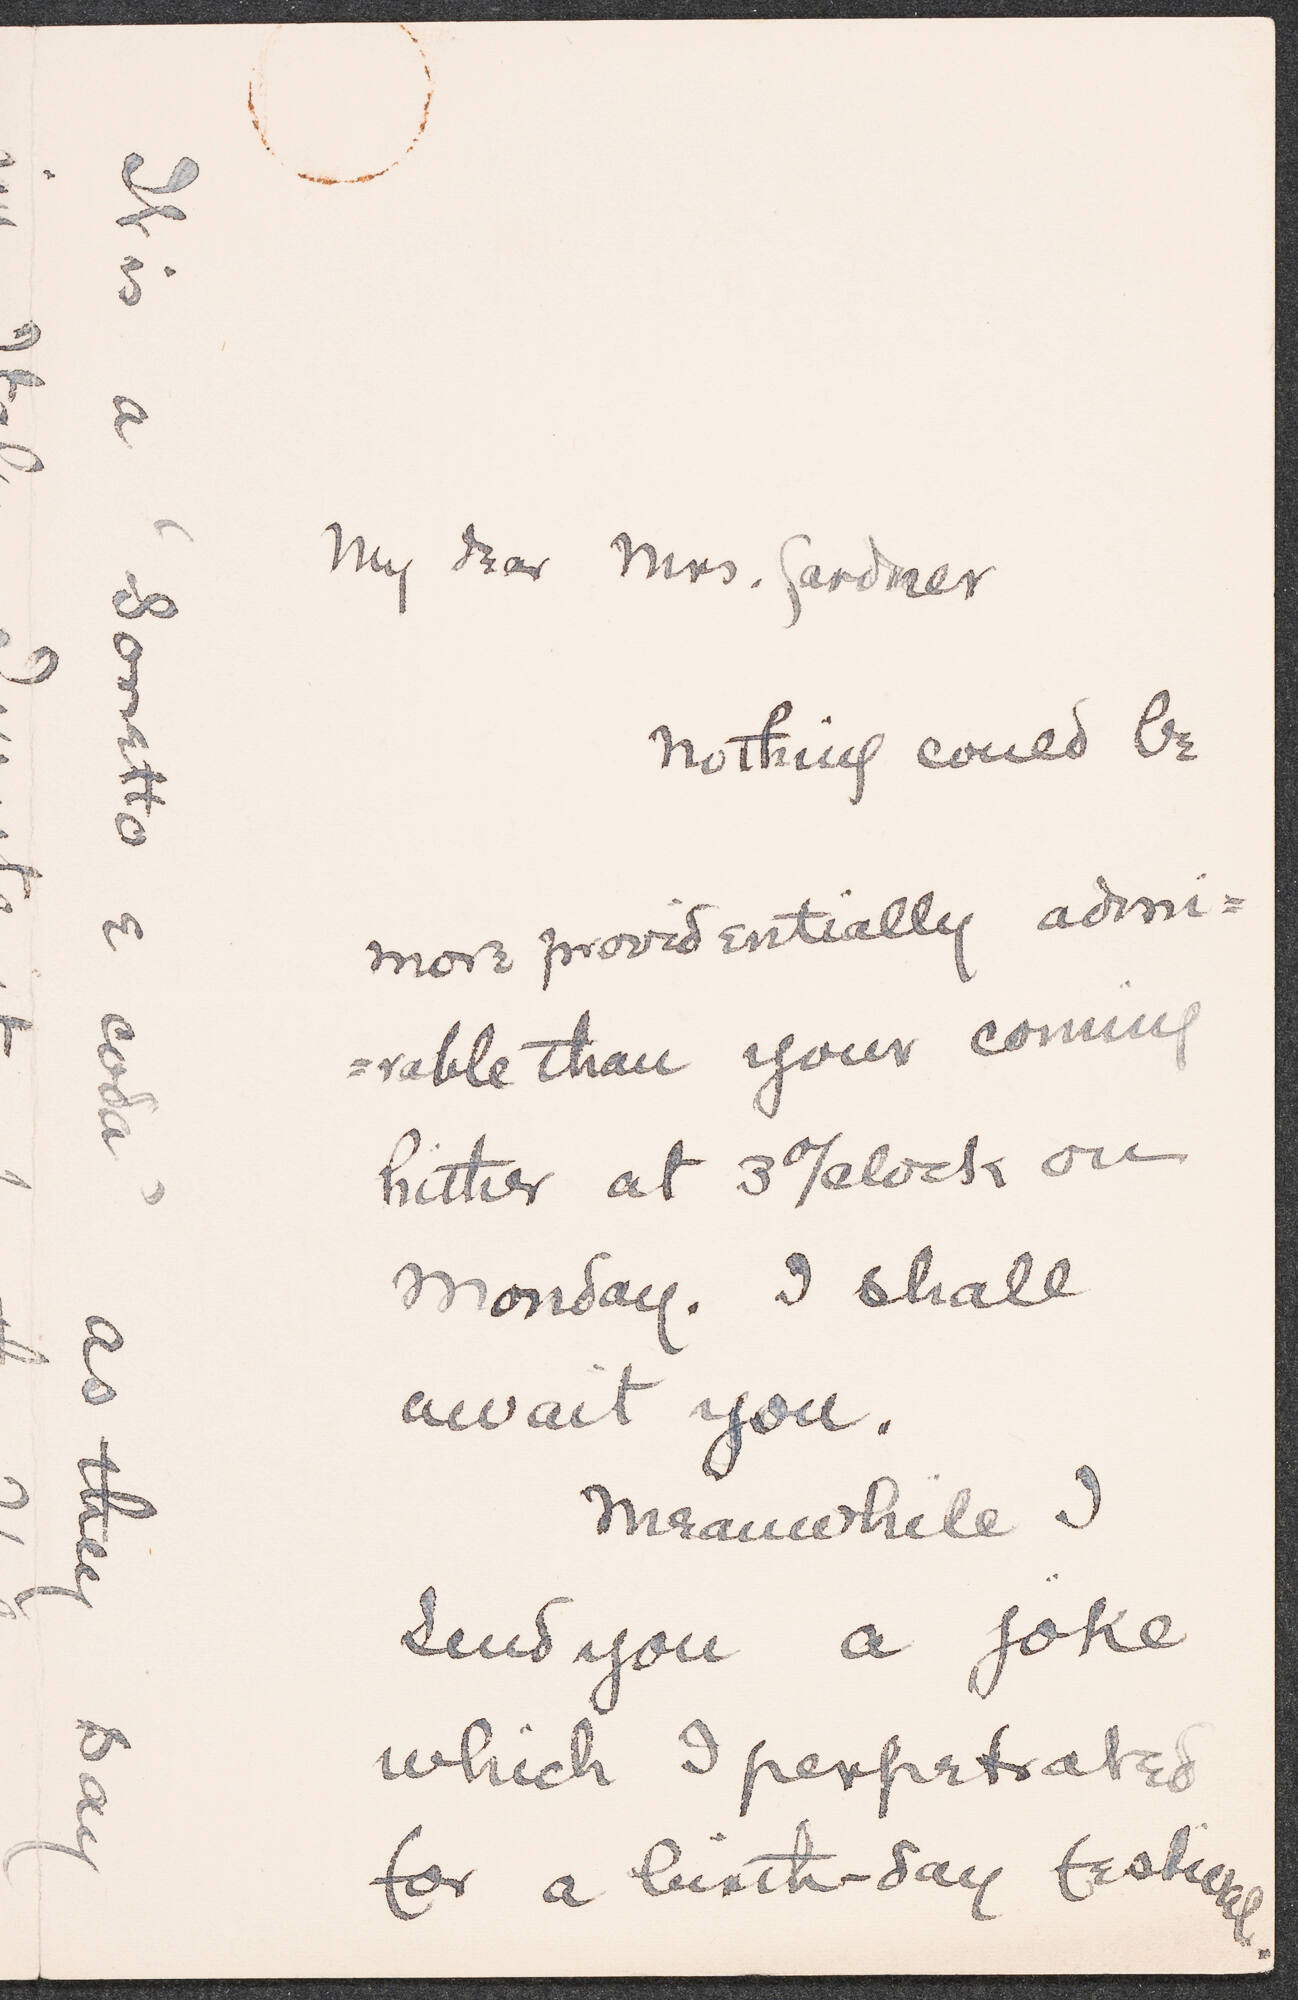 My dear Mrs. Gardner
Nothing could be
more providentially admi=
=rable than your coming
hither at 3 o/clock on
Monday. I shall
await you.
Meanwhile I
send you a joke
which I perpetrated
for a birth-day festival.
It is a "Sonetto e coda" as they say